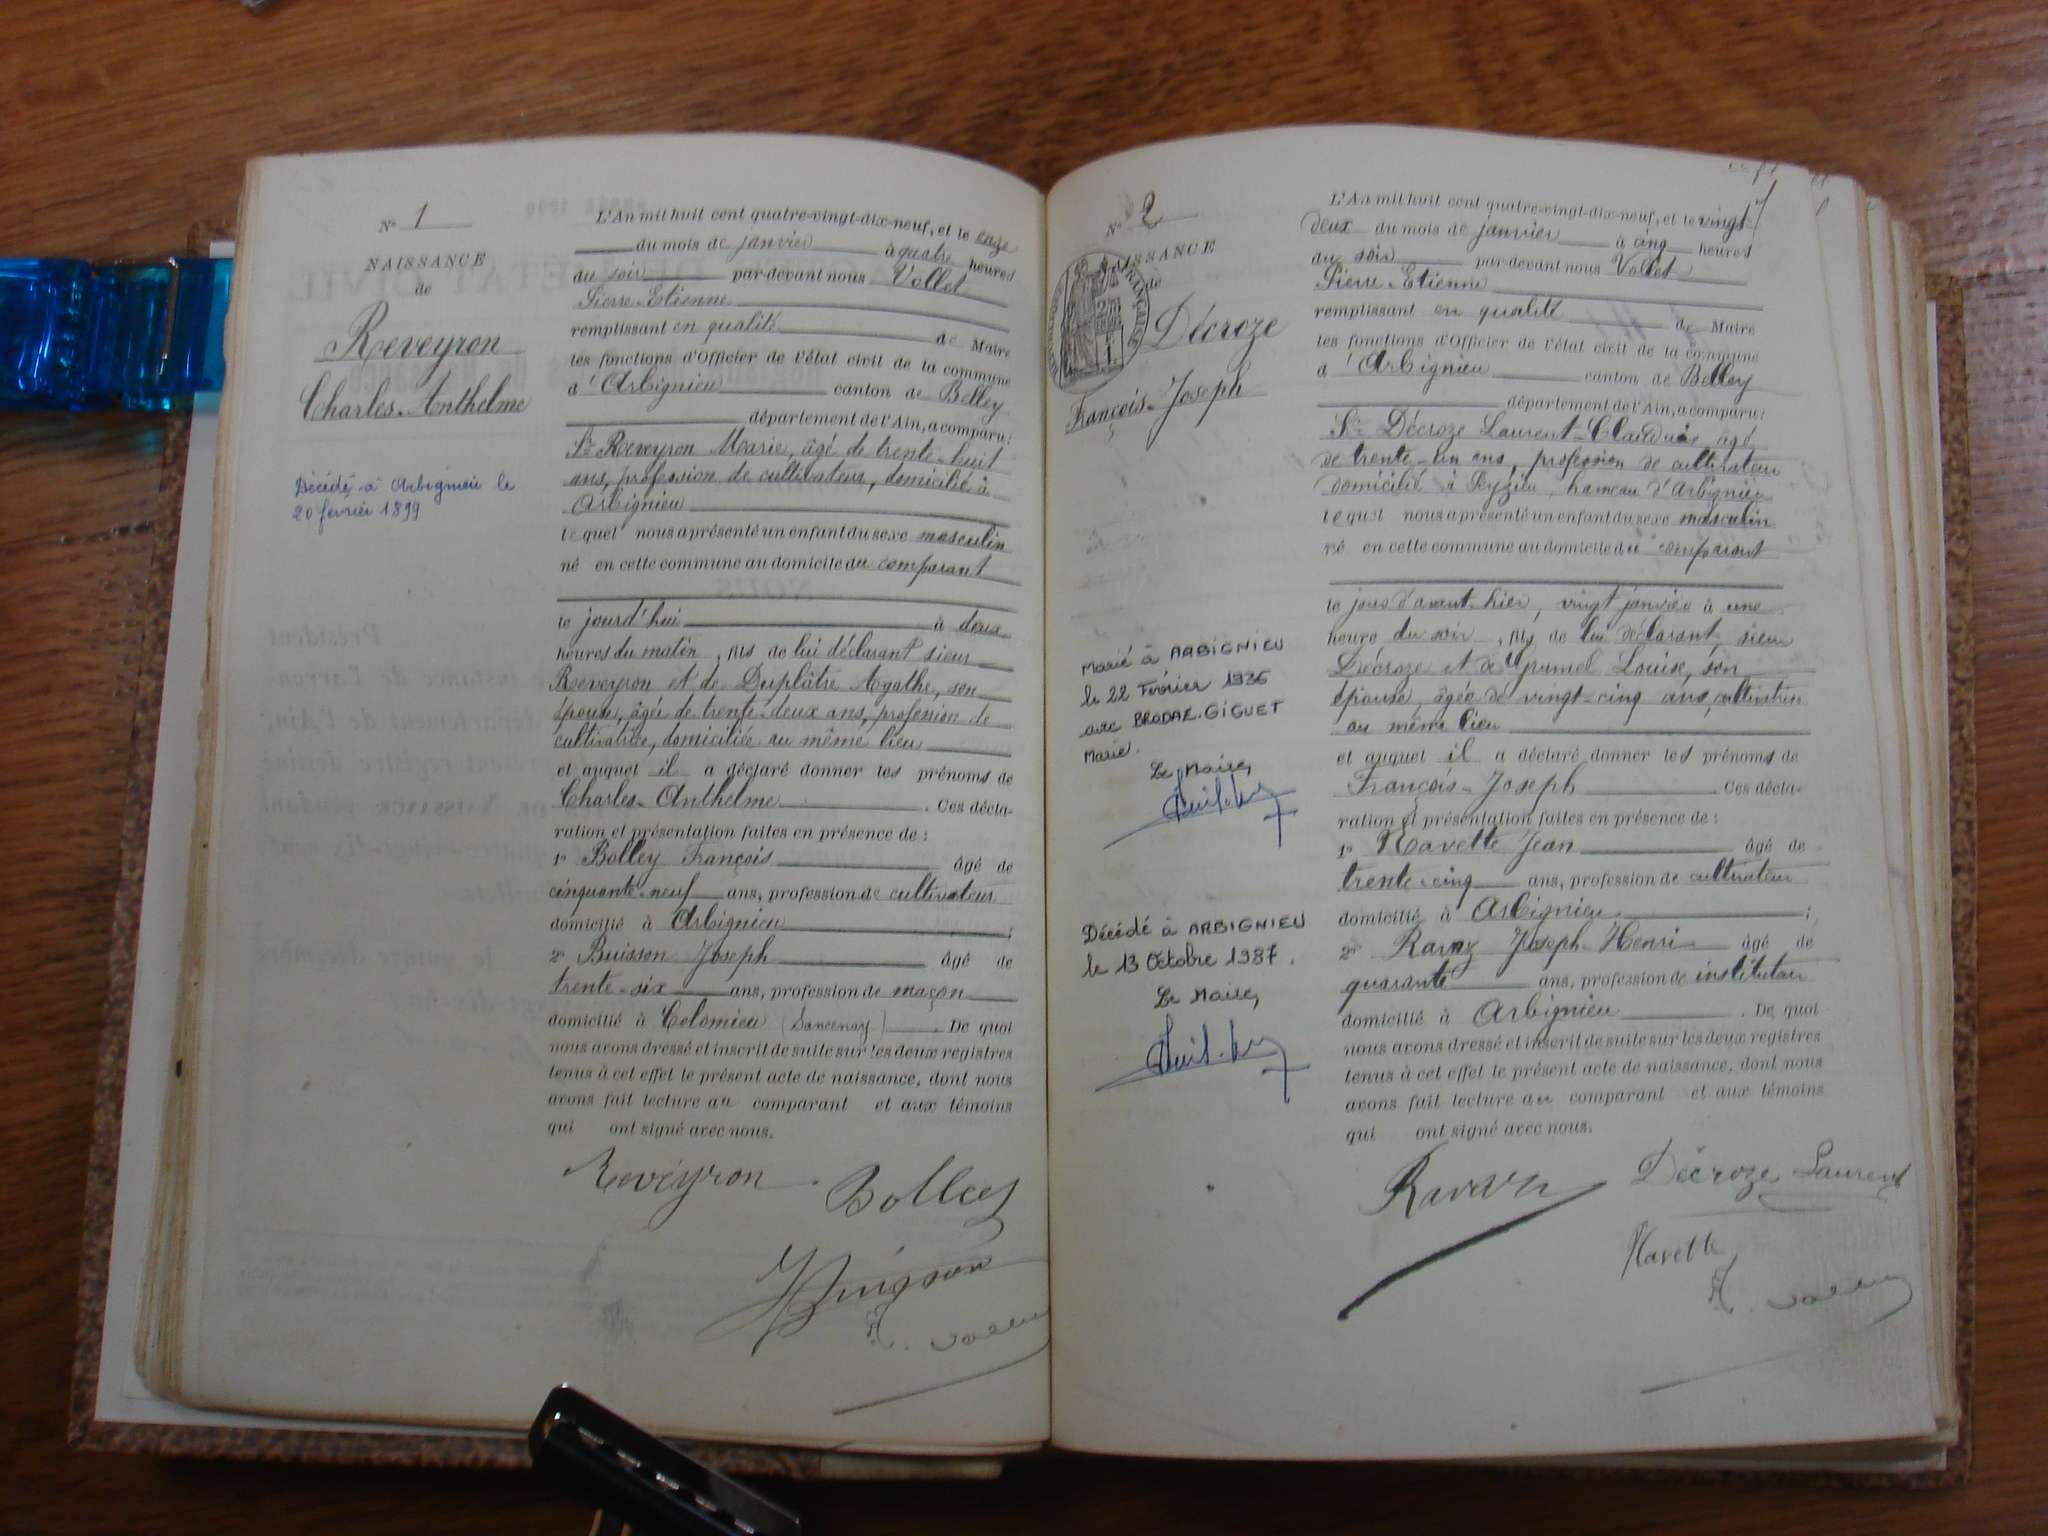 N° 1
NAISSANCE
de
Reveyron
Charles-Anthelme
Décédé à Arbignieu le
20 février 1899
L'An mil huit cent quatre-vingt-dix-neuf, et le onze
du mois de janvier à quatre heures
du soir par-devant nous Vollet
Pierre-Etienne
remplissant en qualité de Maire
les fonctions d'Officier de l'état civil de la commune
d'Arbignieu canton de Belley
département de l'Ain, a comparu:
Sr Reveyron Marie, âgé de trente-huit
ans, profession de cultivateur, domicilié à
Arbignieu
lequel nous a présenté un enfant du sexe masculin
né en cette commune au domicile du comparant
le jourd'hui à deux
heures du matin, fils de lui déclarant sieur
Reveyron et de Duplâtre Agathe, son
épouse, âgée de trente-deux ans, profession de
cultivatrice, domiciliée au même lieu
et auquel il a déclaré donner les prénoms de
Charles-Anthelme. Ces décla-
ration et présentation faites en présence de:
1° Bolley François âgé de
cinquante-neuf ans, profession de cultivateur
domicilié à Arbignieu;
2° Buisson Joseph âgé de
trente-six ans, profession de maçon
domicilié à Colomieu (Sancenay). De quoi
nous avons dressé et inscrit de suite sur les deux registres
tenus à cet effet le présent acte de naissance, dont nous
avons fait lecture au comparant et aux témoins
qui ont signé avec nous.
Reveyron Bolley
N° 2
NAISSANCE
de
Décroze
François-Joseph
Marié à ARBIGNIEU
le 22 Février 1936
avec BRODAZ-GIGUET
Marie.
Le Maire,
Décédé à ARBIGNIEU
le 13 Octobre 1987.
Le Maire,
L'An mil huit cent quatre-vingt-dix-neuf, et le vingt
deux du mois de janvier à cinq heures
du soir par-devant nous Vollet
Pierre-Etienne
remplissant en qualité de Maire
les fonctions d'Officier de l'état civil de la commune
d'Arbignieu canton de Belley
département de l'Ain, a comparu:
Sr Décroze Laurent-Claude, âgé
de trente-un ans, profession de cultivateur
domicilié à Peyzieu, hameau d'Arbignieu
lequel nous a présenté un enfant du sexe masculin
né en cette commune au domicile du comparant
le jour d'avant-hier, vingt janvier à une
heure du soir, fils de lui déclarant sieur
Décroze et de Louise, son
épouse, âgée de vingt-cinq ans, cultivatrice
au même lieu
et auquel il a déclaré donner les prénoms de
François-Joseph. Ces décla-
ration et présentation faites en présence de:
1° Navette Jean âgé de
trente-cinq ans, profession de cultivateur
domicilié à Arbignieu;
2° Joseph-Henri âgé de
quarante ans, profession de instituteur
domicilié à Arbignieu. De quoi
nous avons dressé et inscrit de suite sur les deux registres
tenus à cet effet le présent acte de naissance, dont nous
avons fait lecture au comparant et aux témoins
qui ont signé avec nous.
Décroze Laurent
Navette